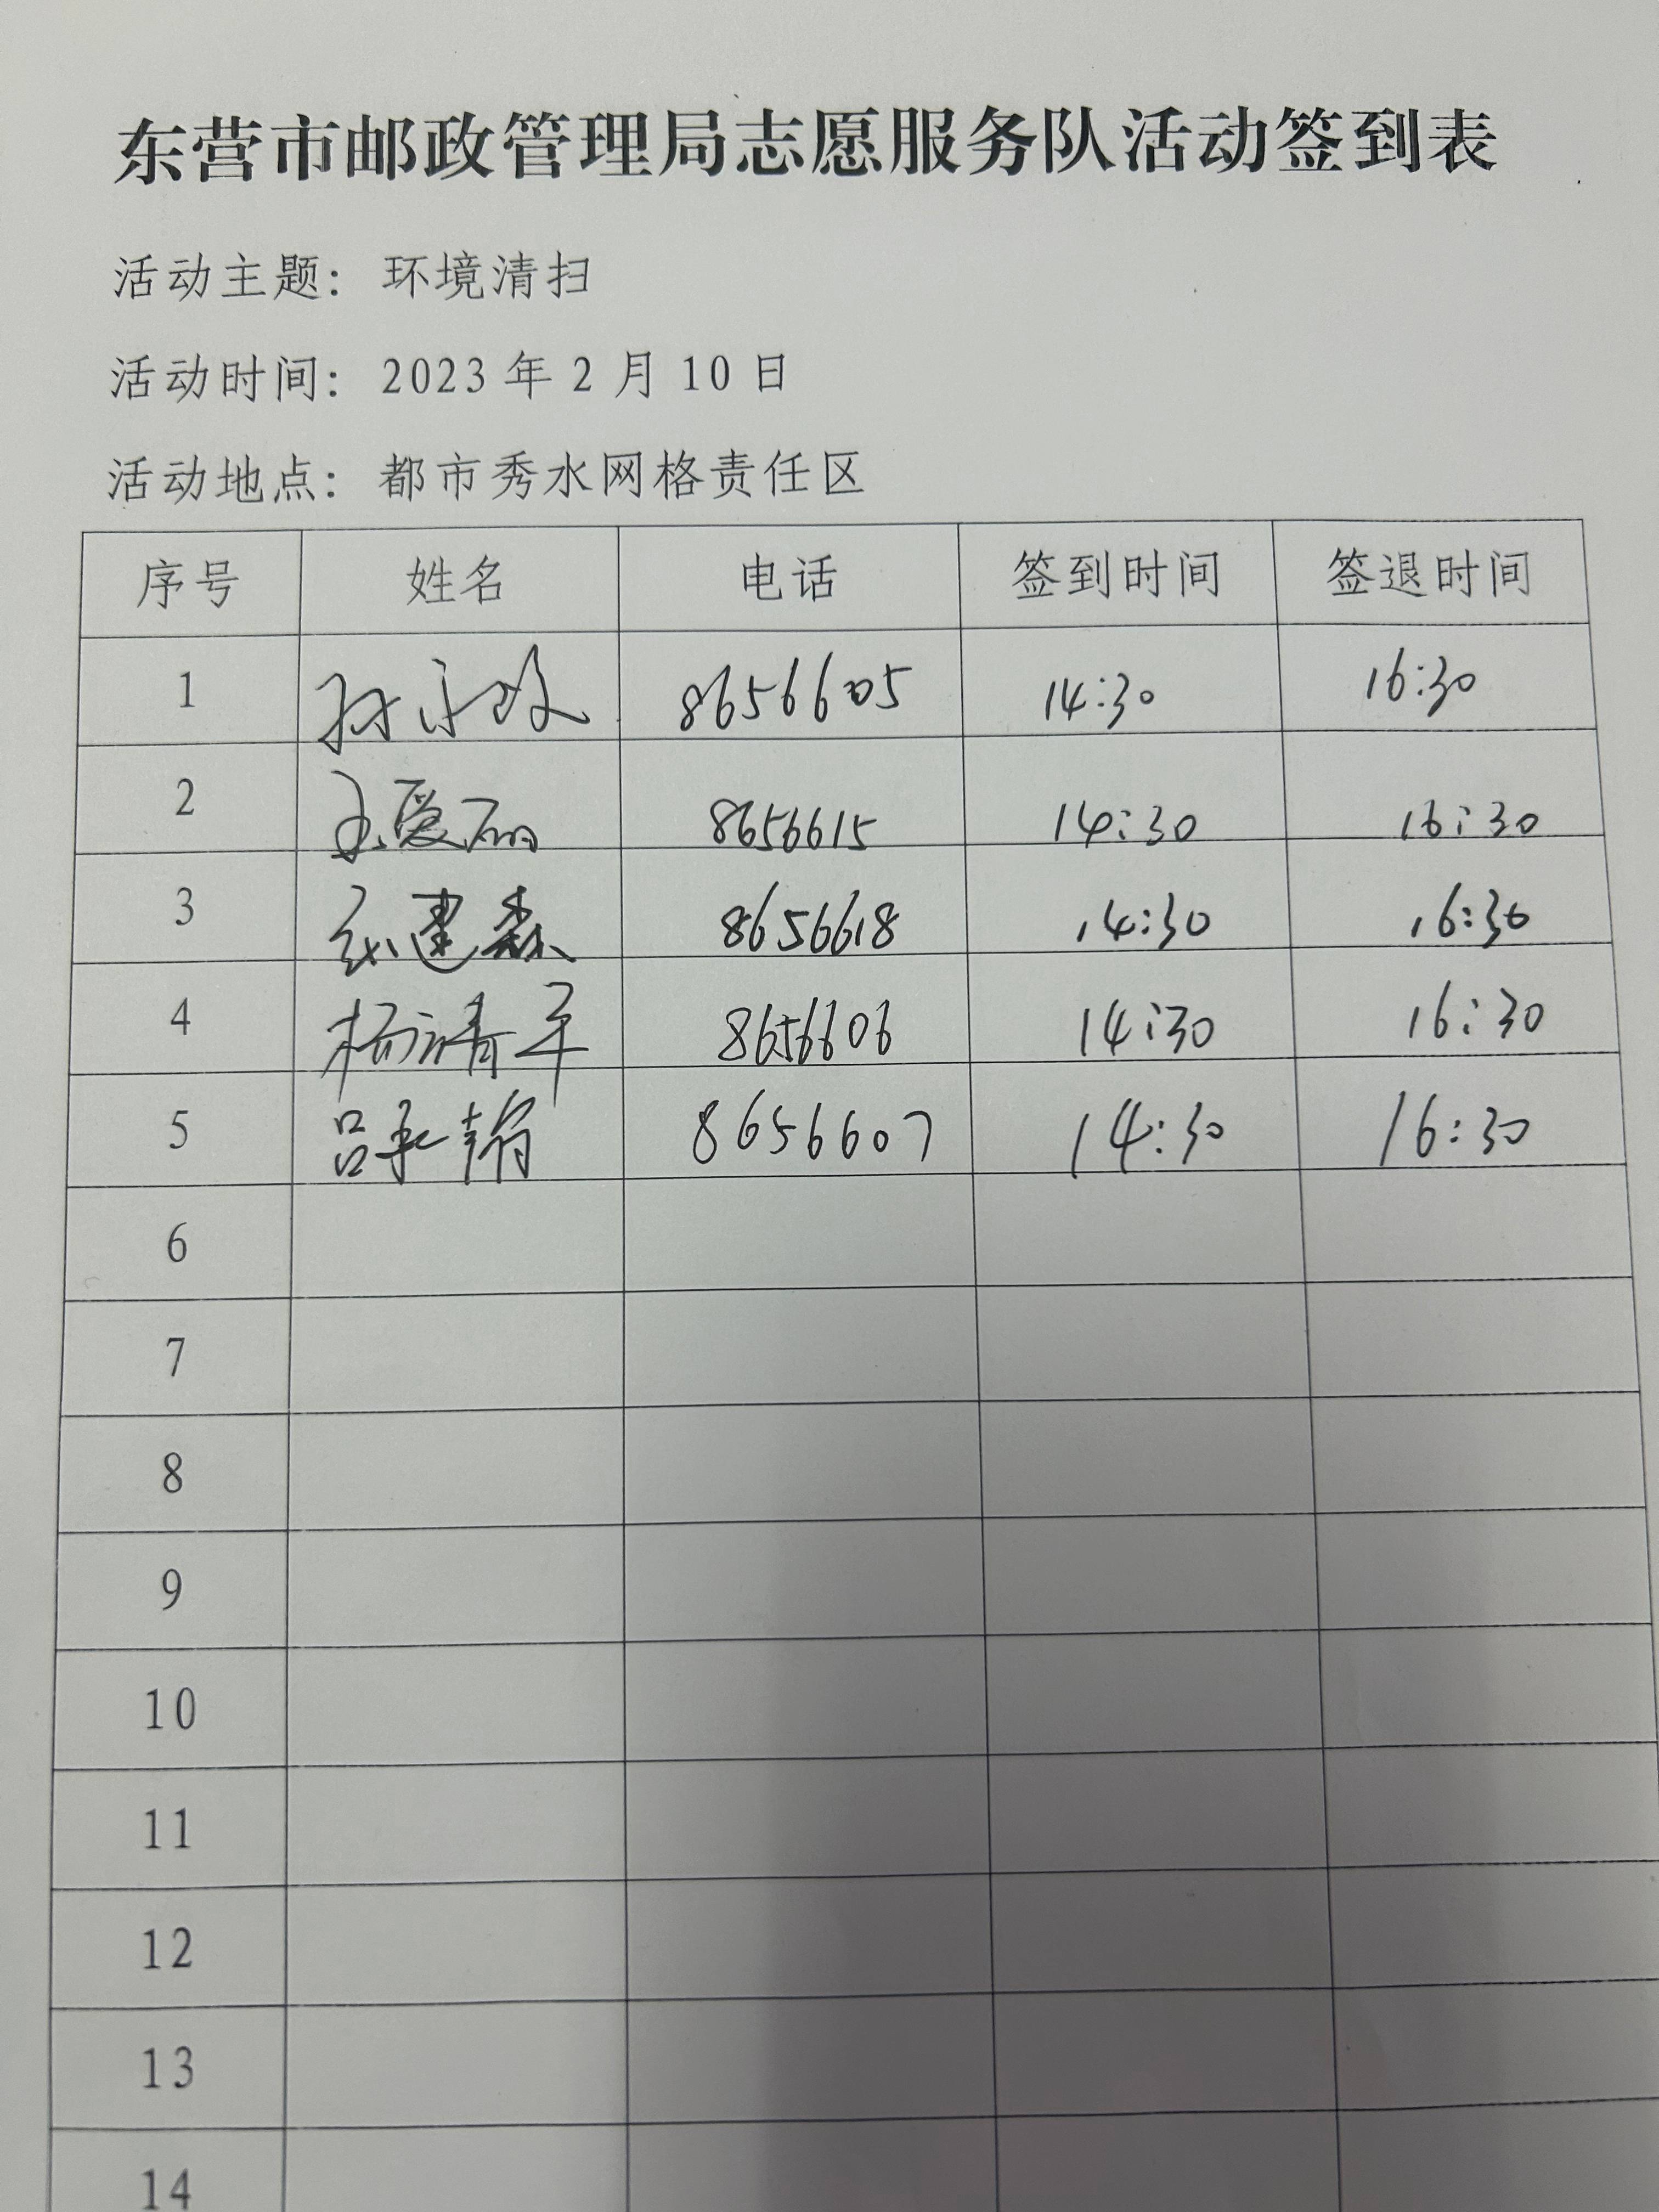 东营市邮政管理局志愿服务队活动签到表
活动主题：环境清扫
活动时间：2023年2月10日
活动地点：都市秀水网格责任区
序号 姓名 电话 签到时间 签退时间
1 8656605 14:30 16:30
2 王爱丽 8656615 14:30 16:30
3 张建森 8656618 14:30 16:30
4 杨靖平 8656606 14:30 16:30
5 吕承翰 8656607 14:30 16:30
6
7
8
9
10
11
12
13
14